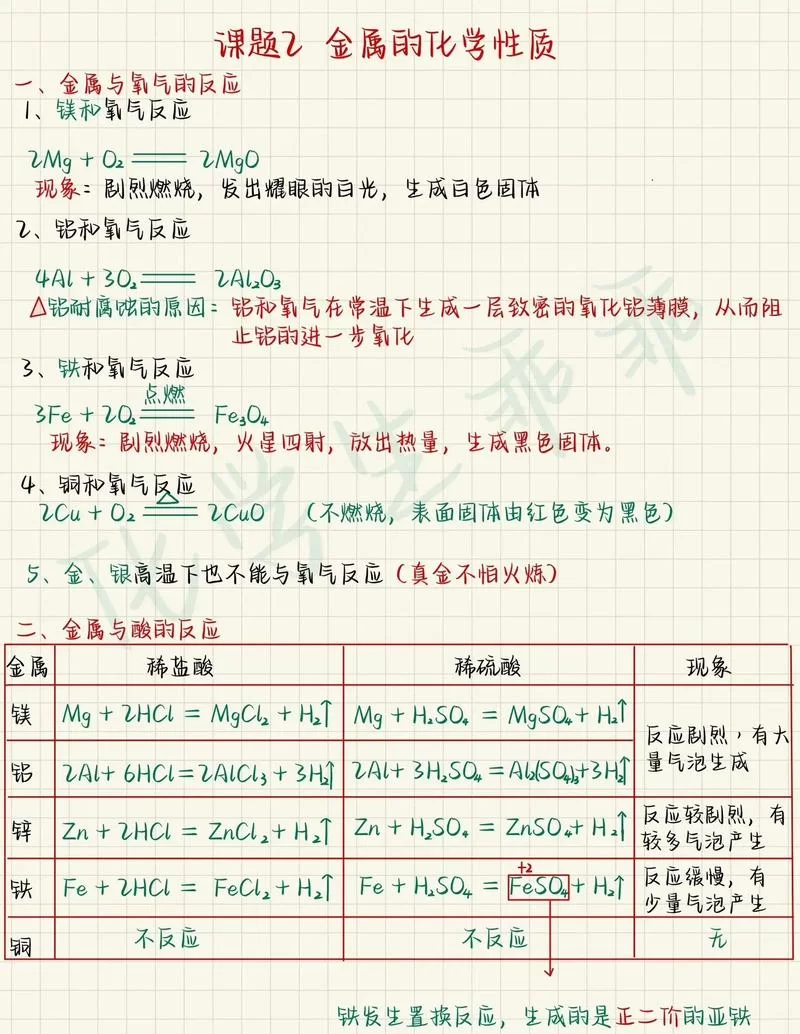 课题2 金属的化学性质
一、金属与氧气的反应
1、镁和氧气反应
2Mg + O₂ ══ 2MgO
现象：剧烈燃烧，发出耀眼的白光，生成白色固体
2、铝和氧气反应
4Al + 3O₂ ══ 2Al₂O₃
△铝耐腐蚀的原因：铝和氧气在常温下生成一层致密的氧化铝薄膜，从而阻
止铝的进一步氧化
3、铁和氧气反应
点燃
3Fe + 2O₂ ══ Fe₃O₄
现象：剧烈燃烧，火星四射，放出热量，生成黑色固体。
4、铜和氧气反应
△
2Cu + O₂ ══ 2CuO （不燃烧，表面固体由红色变为黑色）
5、金、银高温下也不能与氧气反应（真金不怕火炼）
二、金属与酸的反应
金属 稀盐酸 稀硫酸 现象
镁 Mg + 2HCl = MgCl₂ + H₂↑ Mg + H₂SO₄ = MgSO₄ + H₂↑
反应剧烈，有大
量气泡生成
铝 2Al + 6HCl = 2AlCl₃ + 3H₂↑ 2Al + 3H₂SO₄ = Al₂(SO₄)₃ + 3H₂↑
锌 Zn + 2HCl = ZnCl₂ + H₂↑ Zn + H₂SO₄ = ZnSO₄ + H₂↑
反应较剧烈，有
较多气泡产生
+2
铁 Fe + 2HCl = FeCl₂ + H₂↑ Fe + H₂SO₄ = FeSO₄ + H₂↑
反应缓慢，有
少量气泡产生
铜 不反应 不反应 无
铁发生置换反应，生成的是正二价的亚铁
化学生乖乖